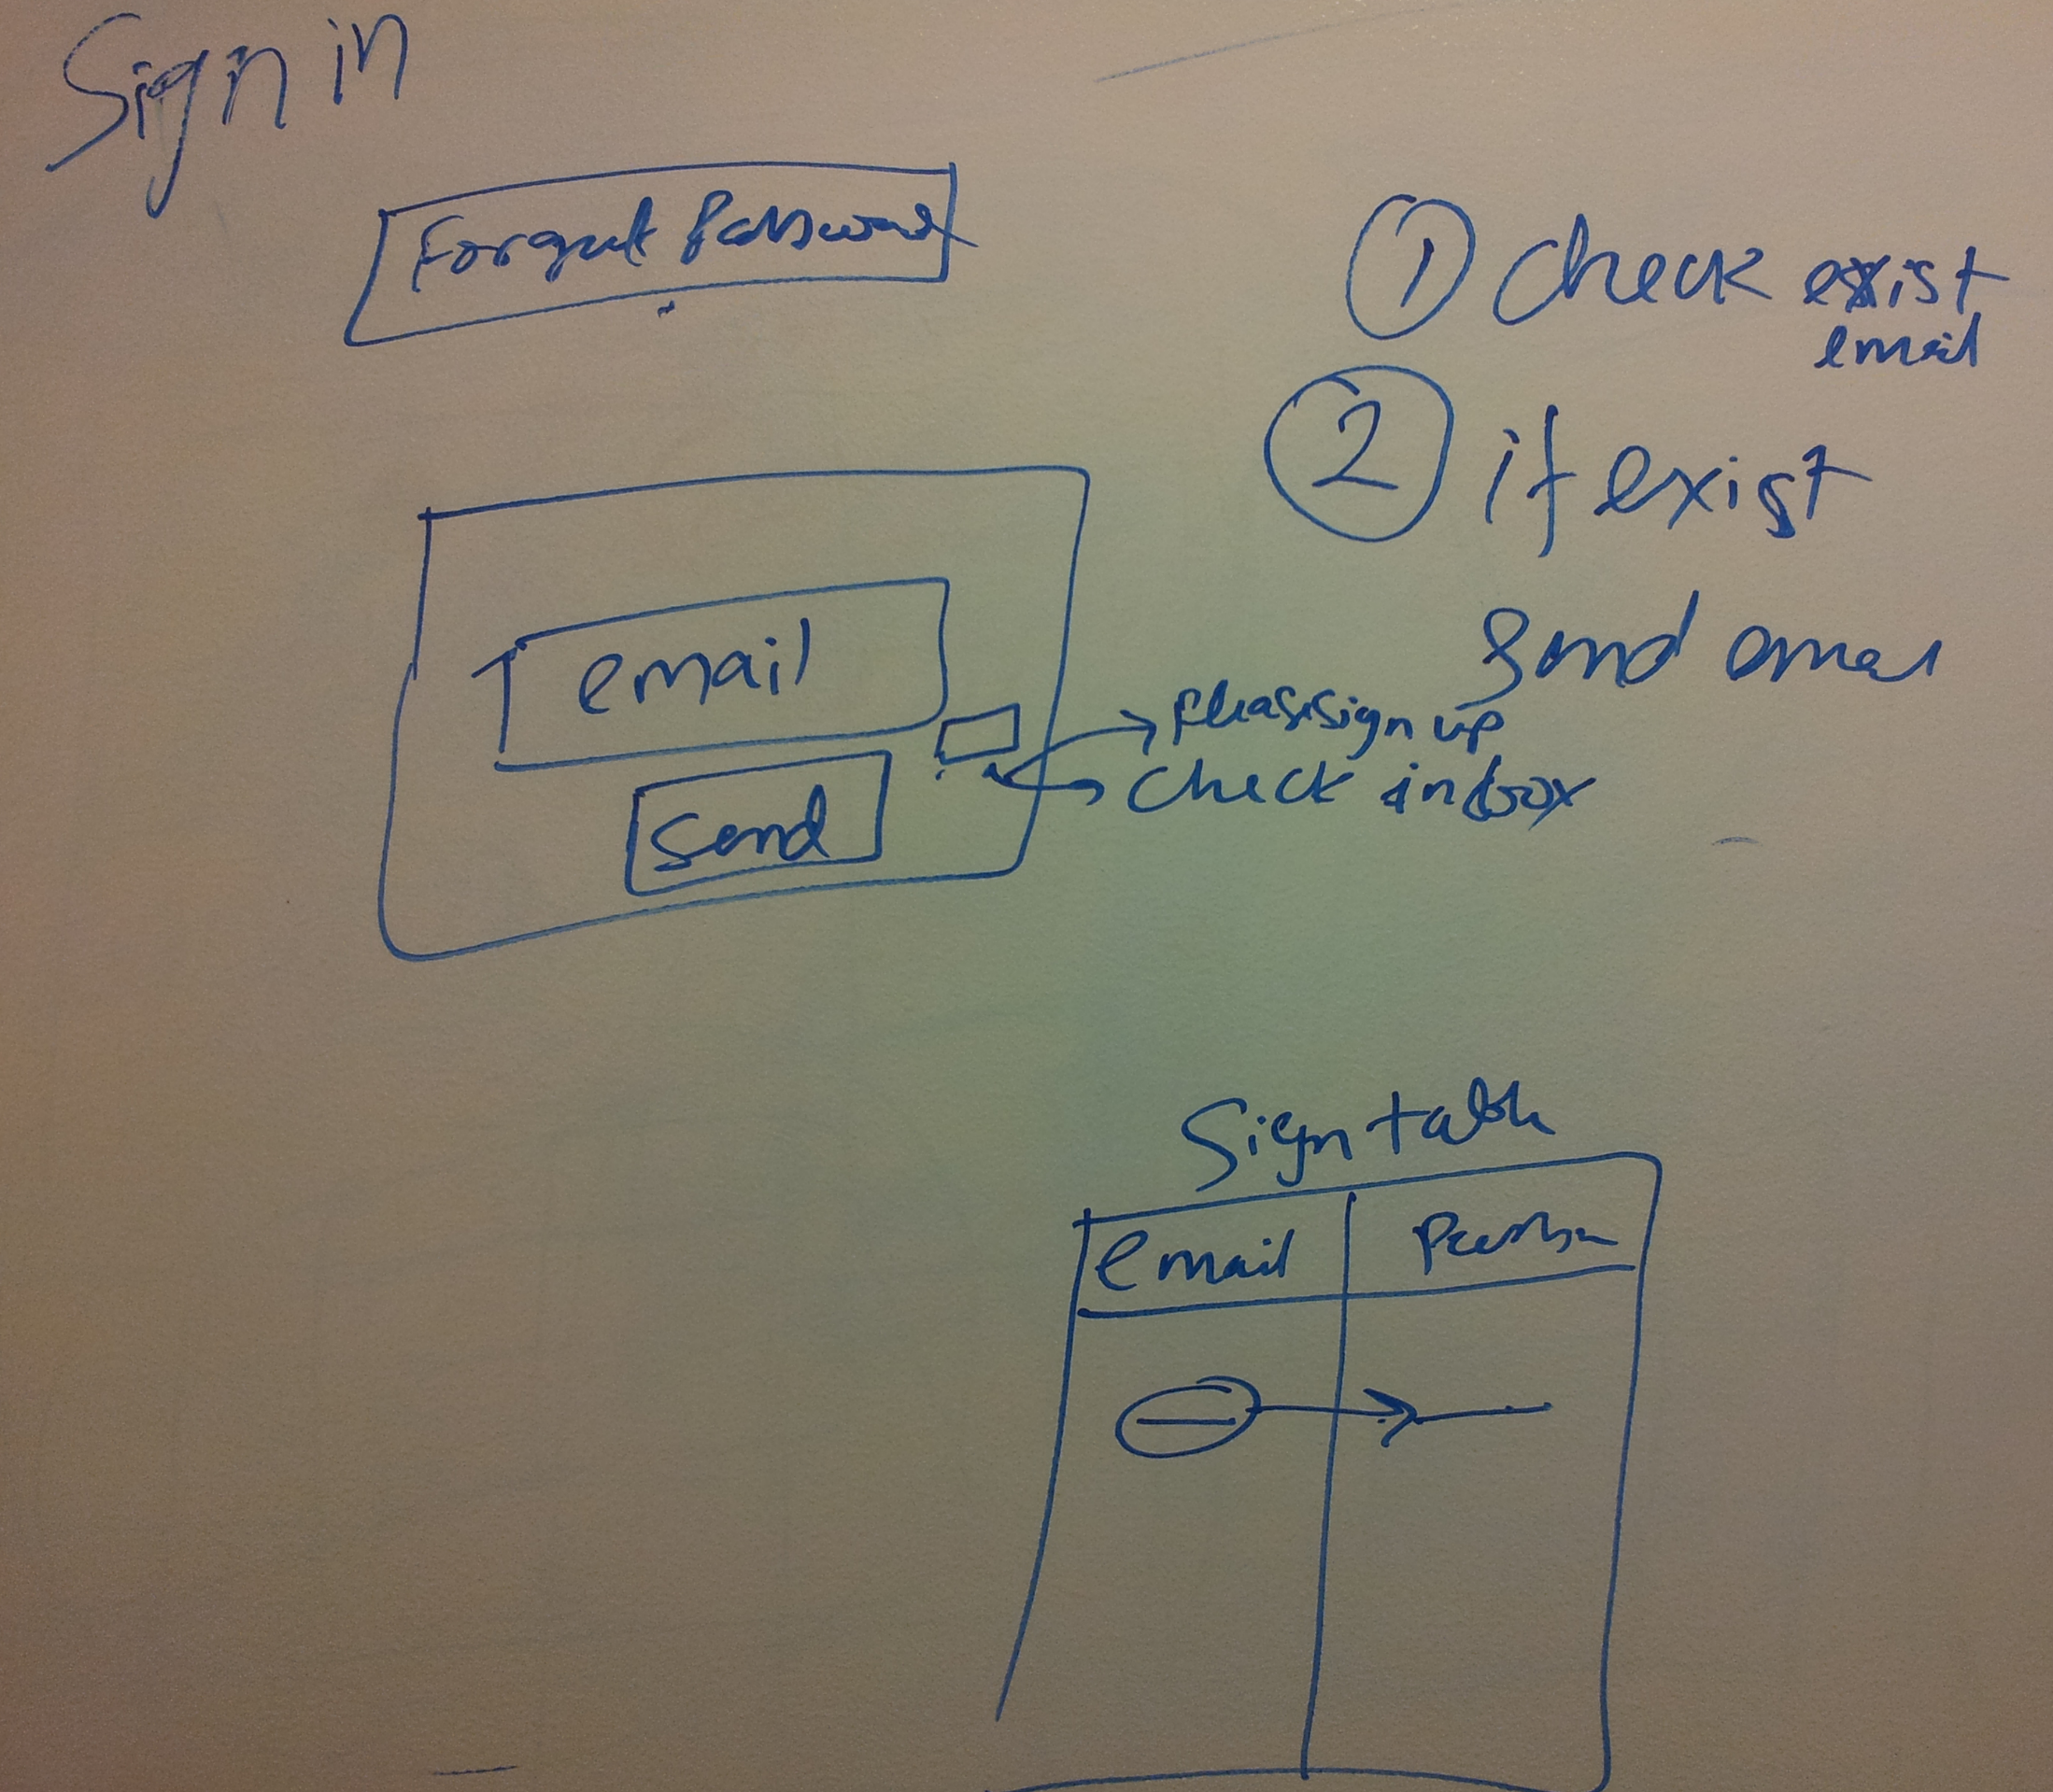 Sign in
Forgot Password
1 Check exist
email
2 if exist
Send email
email
Please sign up
Check inbox
Send
Sign table
email